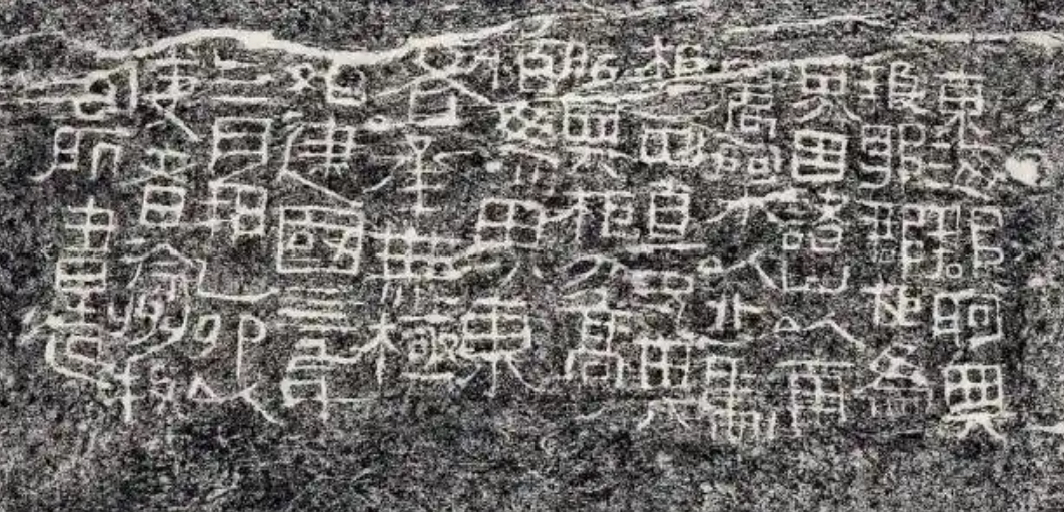 東海郡朐與
琅邪郡柜為
界因諸山以南
屬朐水以北屬
柜西直況其
朐與柜分高
陌為界東
各承無極
始建國四年
四月朔乙卯以
使者徐州牧
治所書造